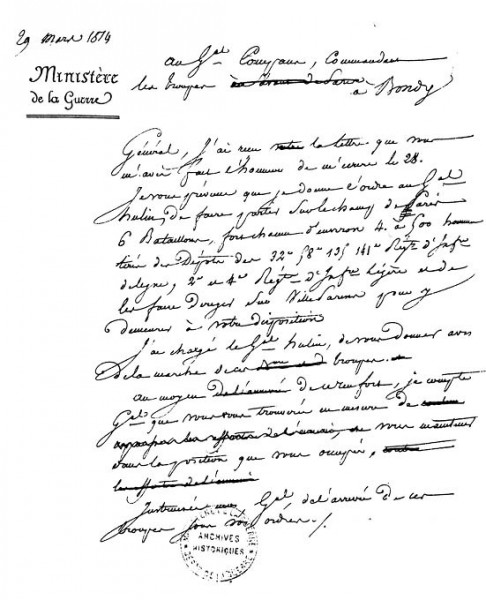 29 Mars 1814
Ministère
de la Guerre
au Gal Compans, Commandant
les troupes en avant de Paris à Bondy
Général, J'ai reçu votre la lettre que vous
m'avez fait l'honneur de m'écrire le 28.
Je vous préviens que je donne l'ordre au Gal
hulin, de faire partir sur le champ de Paris
6 Bataillons, forts chacun d'environ 4. à 500 hommes
tirés des Dépôts des 32e 58e 135 141e Régts d'Infie
de ligne, 2e et 4e Régts d'Infie légère et de
les faire diriger sur Ville Parisis pour y
demeurer à votre disposition
J'ai chargé le Gal hulin, de vous donner avis
de la marche de ces troupes.
au moyen de l'arrivée de ce renfort, je compte
Gal que vous vous trouverez en mesure de
vous maintenir
dans la position que vous occupez,
les efforts de l'ennemi
Instruisez moi Gal de l'arrivée de ces
troupes sous vos ordres./.
ARCHIVES
HISTORIQUES